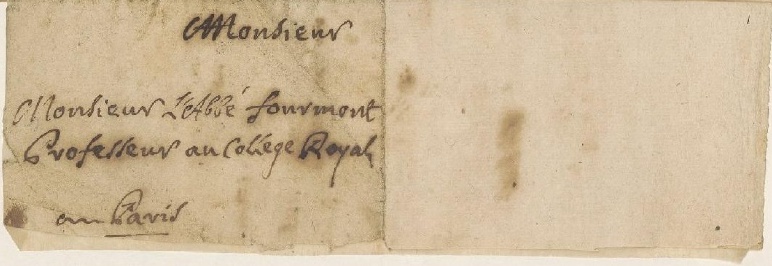 Monsieur
Monsieur L'Abbé fourmont
Professeur au College Royal
a Paris